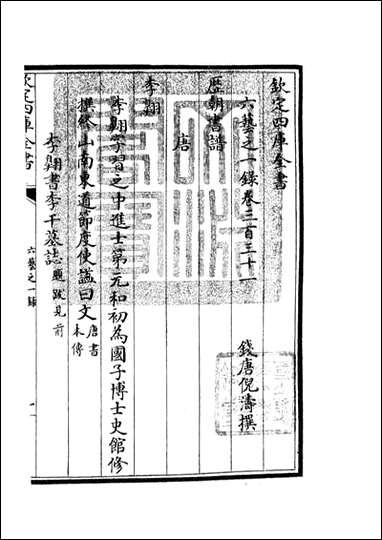 欽定四庫全書
六藝之一録卷三百三十一
錢唐倪濤撰
歴朝書譜
唐
李翺
李翺字習之中進士第元和初為國子博士史館修
撰終山南東道節度使諡曰文唐書本傳
李翺書李干墓誌 跋見前
欽定四庫全書
六藝之一録
一